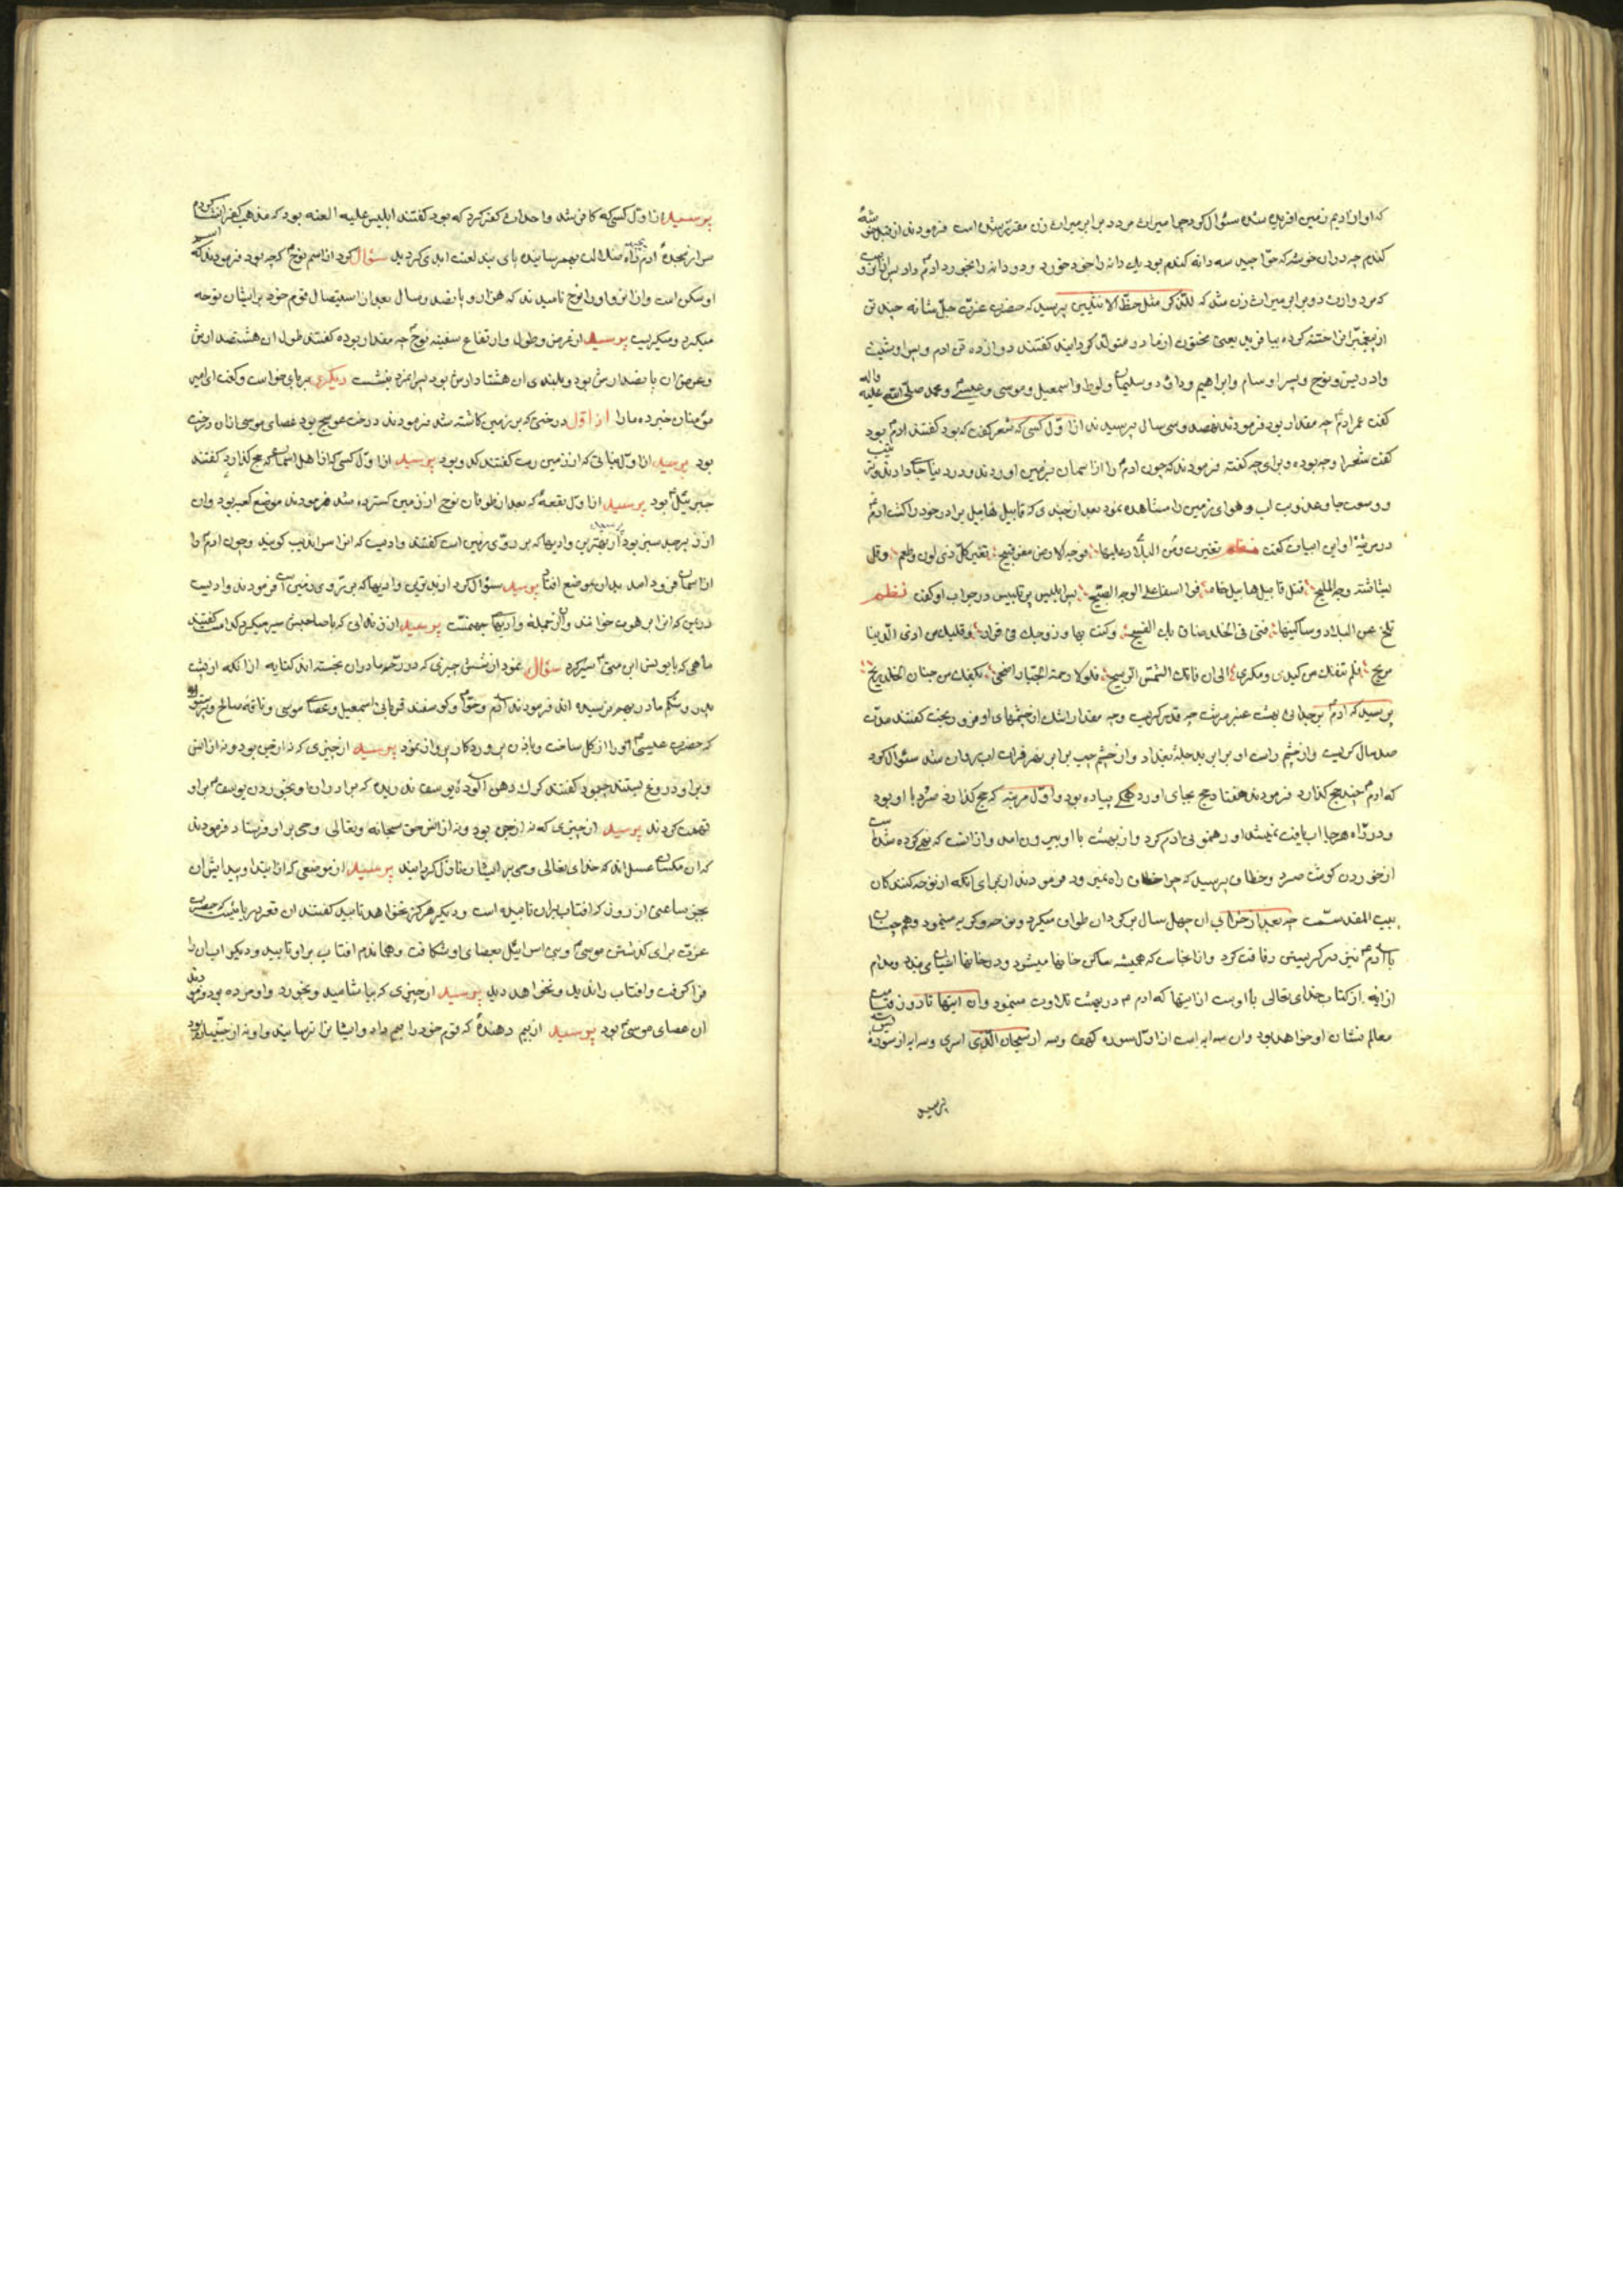 که او از ادیم زمین افریده شده سئوال کرد چرا میراث مرد دو برابر میراث زن مقدر شده است فرمودند از قبل خوشهٔ
کندم چه دران خوشه که حوّا چید سه دانه کندم بود یك دانه را خود خورد و دو دانه را بخورد ادمؑ داد پس
که مرد وارث دو برابر میراث زن شد که للذّکر مثل حظّ الانثیین پرسید که حضرت عزت جلّ شانه چند تن
از پیغمبرانرا ختنه کرده بیافرید یعنی مختون از مادر متولّد کردانید کفتند دوازده تن ادم و پسر او شیث
وادریس و نوح و پسر او سام و ابراهیم و داود و سلیمان و لوط و اسمعیل و موسی و عیسی و محمد صلّی الله علیه واله
کفت عمر ادمؑ چه مقدار بود فرمودند نهصد و سی سال پرسیدند از اوّل کسی که شعر کفت که بود کفتند ادمؑ بود
کفت شعر او چه بوده و برای چه کفته فرمودند که چون ادمؑ را از اسمان بزمین اوردند و در دنیا جا دادند
و وسعت جا و عذوبت اب و هوای زمین را مشاهده نمود بعد از چندی که قابیل هابیل برادر خود را کشت ادمؑ
در مرثیهٔ او این ابیات کفت نظم تغیرت البلاد و من علیها فوجه الارض مغبر قبیح تغیر کلّ ذی لون و طعم وقل
بشاشة وجه الملیح قتل قابیل هابیل اخاه فوا اسفا علی الوجه الصبیح پس ابلیس پر تلبیس در جواب او کفت نظم
تنح عن البلاد و ساکنیها فتی فی الخلد ضاق بك الفسیح وکنت بها و زوجك فی قرار وقلبك من اذی الدنیا
مریح فلم تنفك من کیدی و مکری الی ان فاتك الثمن الربیح فلولا رحمة الجبّار اضحی بکفك من جنان الخلد ریح
پرسید که ادمؑ بر جدائی بهشت عنبر سرشت چه قدر کریست و چه مقدار اشك از چشمهای او فرو ریخت کفتند مدّت
صد سال کریست و از چشم راست او برابر دجلهٔ بغداد و از چشم چپ برابر نهر فرات اب روان شد سئوال کرد
که ادمؑ چند حج کذارد فرمودند هفتاد حج بجای اورد همکی پیاده بود و اوّل مرتبه که حج کذارد صرد با او بود
و در راه هر جا اب یافت نمیشد او رهنمونی ادم کرد و از بهشت با او بیرون امد و از انست که نهی کرده شد
از خوردن کوشت صرد و خطاف پرسید که چرا خطاف راه نمیرود فرمودند از برای انکه او نوحه کنند کان
بیت المقدّست چه بعد از خرابی ان چهل سال بر کرد ان طواف میکرد و نوحه و کریه مینمود و هم چنان
با ادمؑ نیز در کریستن رفاقت کرد و از انجاست که همیشه ساکن خانها میشود و در خانها اشیان می نهد و مدام
از ایه از کتاب خدای تعالی با اوست از اینها که ادم در بهشت تلاوت مینمود و ان اینها تا روز قیامت
معالم نشان او خواهد بود و ان سه ایه است از اوّل سوره کهف و سه از سبحان الّذی اسری و سه ایه از سورهٔ یس
پرسید
پرسید از اوّل کسی که کافر شد و احداث کفر کرد که بود کفتند ابلیس علیه العنه بود که مذهب کفر را انشا کرد
سر از سجدهٔ ادم ضلالت بهم رسانیده پای بند لعنت ابدی کردید سئوال کرد از اسم نوحؑ که چه بود فرمودند که
او سکن است و از انرو او را نوح نامیدند که هزار و پانصد سال بعد از استیصال قوم خود بر ایشان نوحه
میکرد و میکریست پرسید از عرض و طول و ارتفاع سفینه نوحؑ چه مقدار بوده کفتند طول ان هشتصد ارش
و عرض ان پانصد ارش بود و بلندی ان هشتاد ارش بود پس انمرد بنشست دیکری بر پای خواست و کفت ای امیر
مؤمنان خبر ده مارا از اوّل درختی که بر زمین کاشته شد فرمودند درخت عوسج بود عصای موسی از ان درخت
بود پرسید از اوّل نباتی که از زمین رست کفتند کدو بود پرسید از اوّل کسی که از اهل اسمان که حج کذارد کفتند
جبرئیلؑ بود پرسید از اوّل بقعهٔ که بعد از طوفان نوح از زمین کسترده شد فرمودند موضع کعبه بود و ان
از زبرجد سبز بود پرسید از بهترین وادیها که بر روی زمین است کفتند وادیست که انرا سراندیب کویند و چون ادمؑ را
از اسمان فرود امد بدان موضع افتاد پرسید سئوال کرد از بدترین وادیها که بر روی زمین است فرمودند وادیست
در یمن که انرا برهوت خوانند و از جمله وادیهای جهنمست پرسید از زندانی که با صاحبش سیر میکرد کدام است کفتند
ماهی که با یونس ابن متیؑ سیر کرد سئوال نمود از شش چیزی که در رحم مادران نخسته اند کنایه از انکه از پشت
پدر و شکم مادر بهم نرسیده اند فرمودند ادم و حوّا و کوسفند قربانی اسمعیل و عصای موسی و ناقه صالح و
که حضرت عیسیؑ انرا از کل ساخت و باذن پروردکار پرواز نمود پرسید از چیزی که نه از جن بود و نه از انس
و بر او دروغ بستند چبود کفتند کرك دهن آلودهٔ یوسف ندریده که برادران او بخوردن یوسفؑ بر او
تهمت کردند پرسید از چیزی که نه از جن بود و نه از انس حق سبحانه و تعالی وحی بر او فرستاد فرمودند
که ان مکسان عسل اند که خدای تعالی وحی بر ایشان نازل کردانید پرسید از موضعی که از ابتداء پیدایش ان
بجز ساعتی از روز که افتاب بران تابیده است و دیکر هرکز نخواهد تابید کفتند ان قعر دریائیست که حضرت
عزت برای کذشتن موسیؑ و بنی اسرائیل بعصای او شکافت و هماندم افتاب بر او تابید و دیکر اب ان را
فرا کرفت و افتاب را ندید و نخواهد دید پرسید از چیزی که بیاشامید و بخورد و او مرده بود فرمودند
ان عصای موسیؑ بود پرسید از بیم دهندهٔ که قوم خود را بیم داد و ایشانرا ترسانید و او نه از جنّیان بود